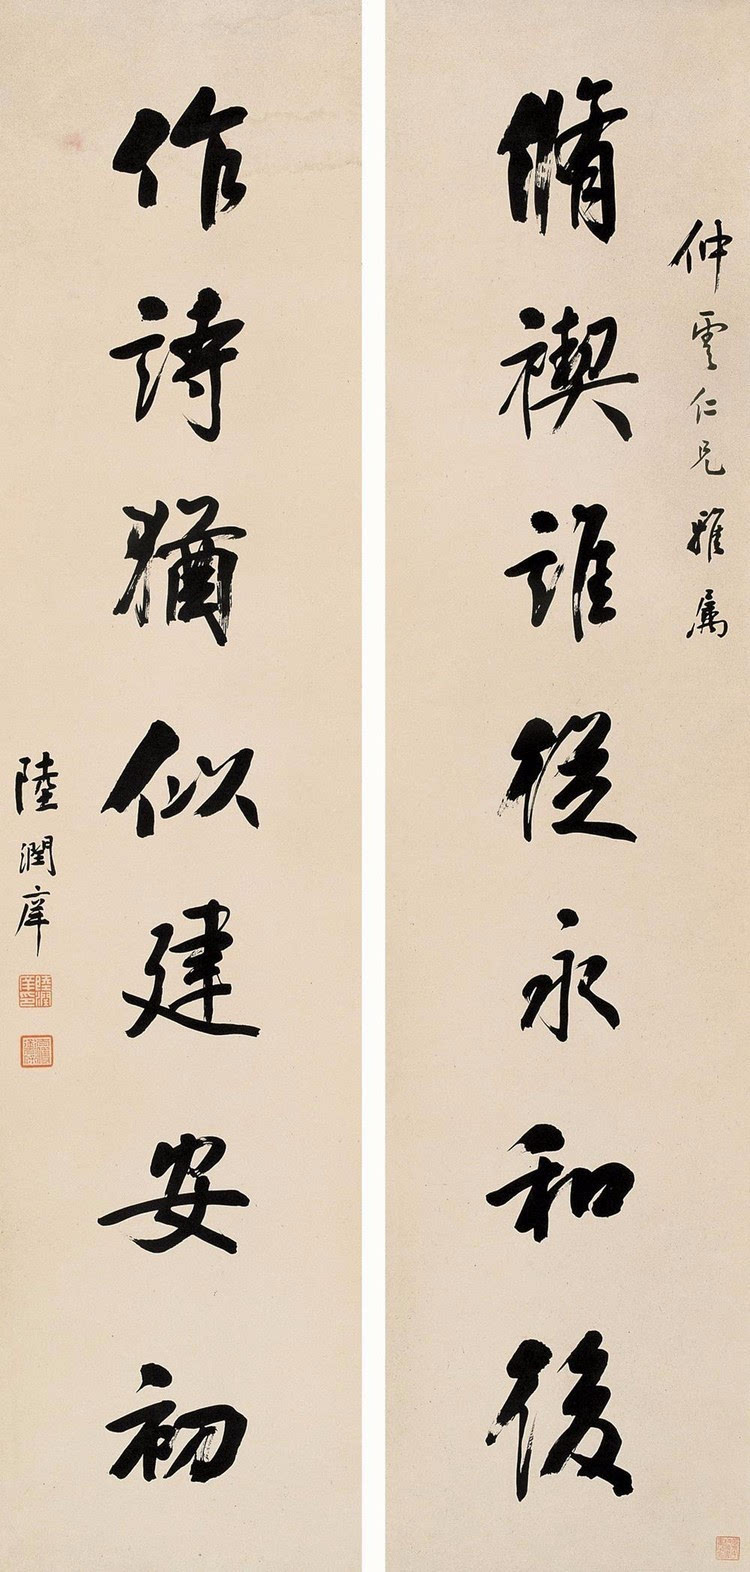 仲雲仁兄雅属
脩禊誰從永和後
作詩猶似建安初
陸潤庠